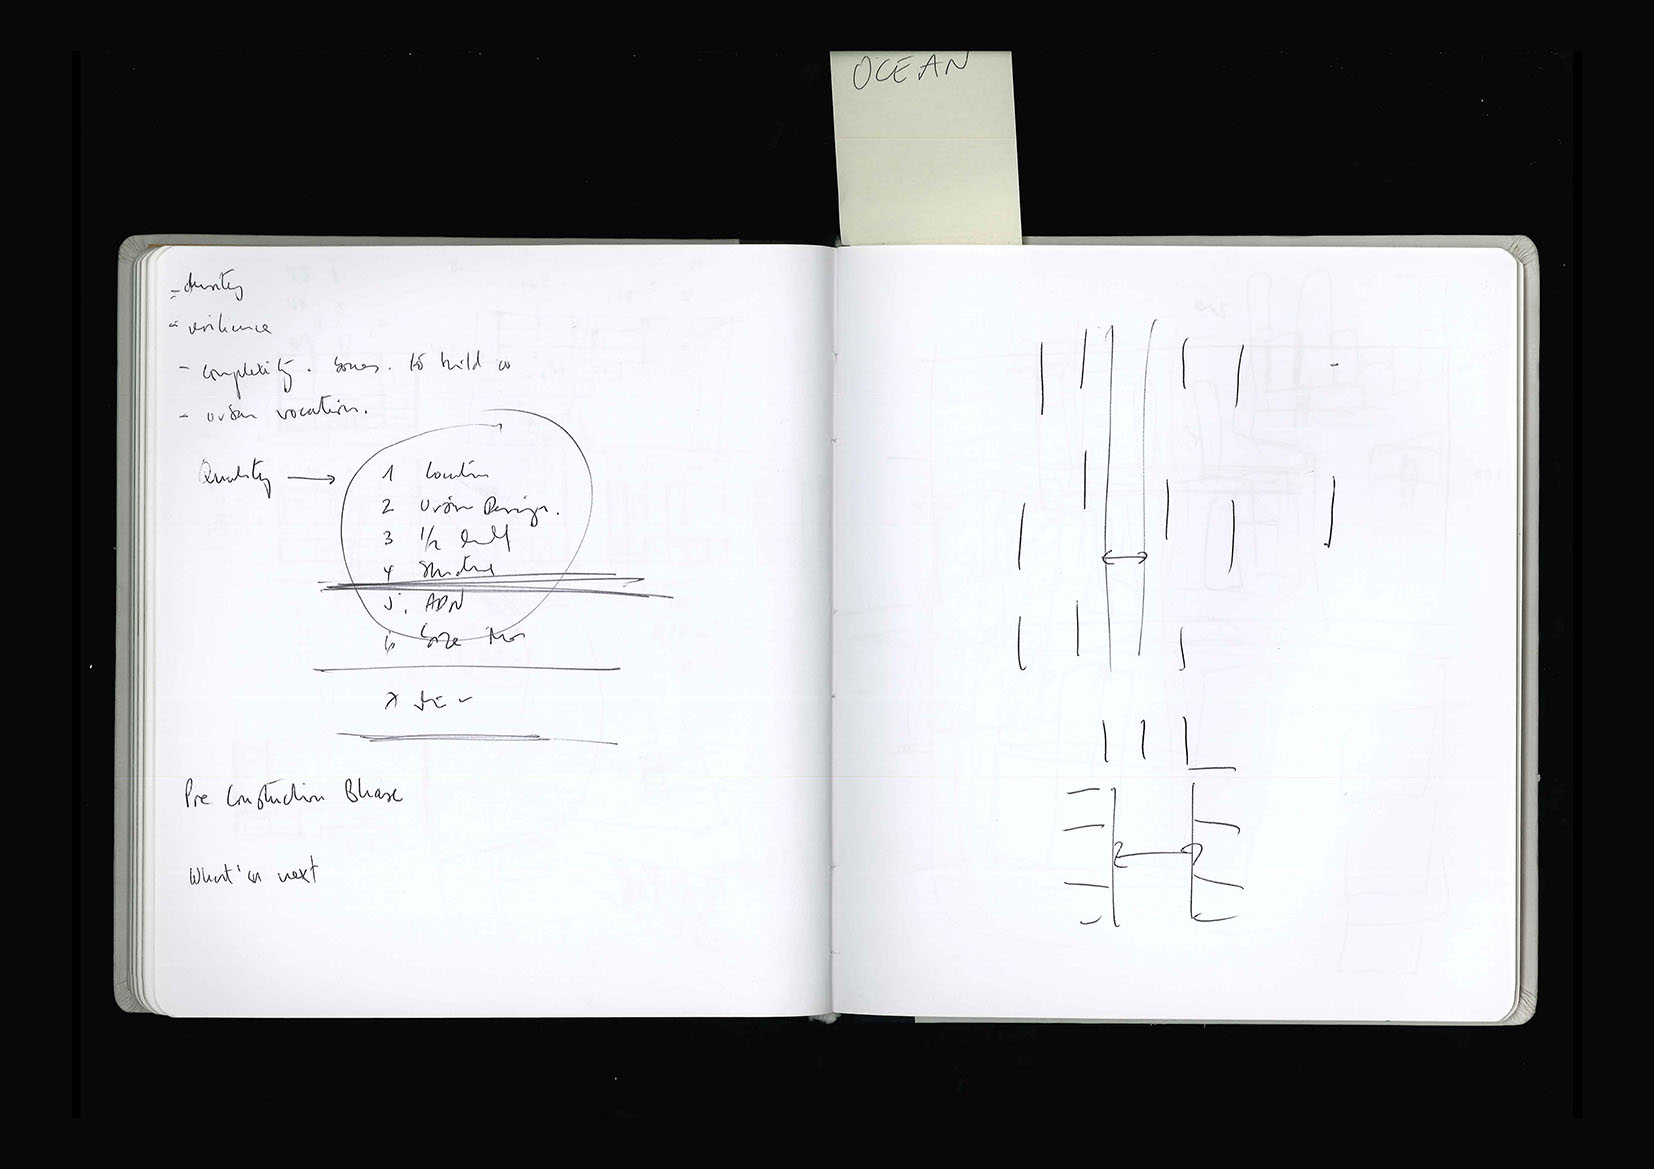 OCEAN
- density
- resilience
- complexity. to build
- urban vocation.
Quality →
1 location
2 urban Design.
3 1/2
4 Structure
5. ADN
6 Size
Pre Constuction Phase
What's next